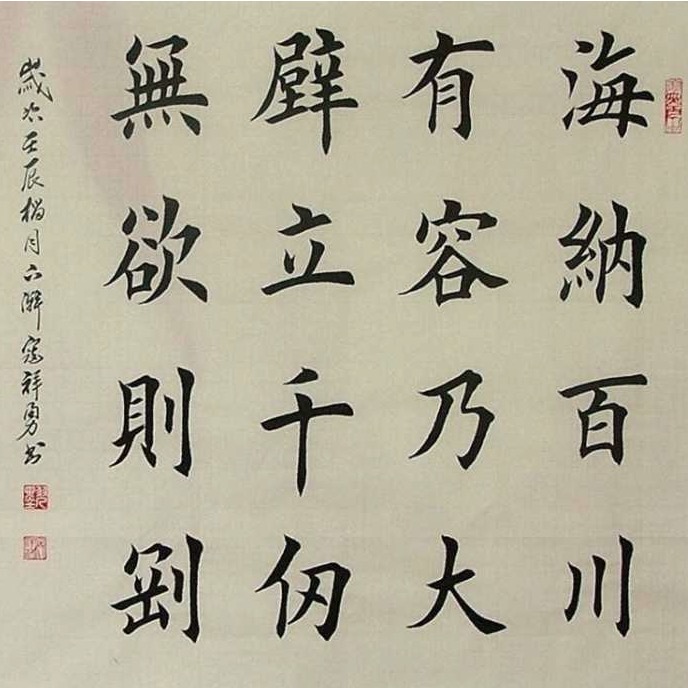 海納百川
有容乃大
壁立千仞
無欲則剛
歲次壬辰榴月六澣寇祥勇書